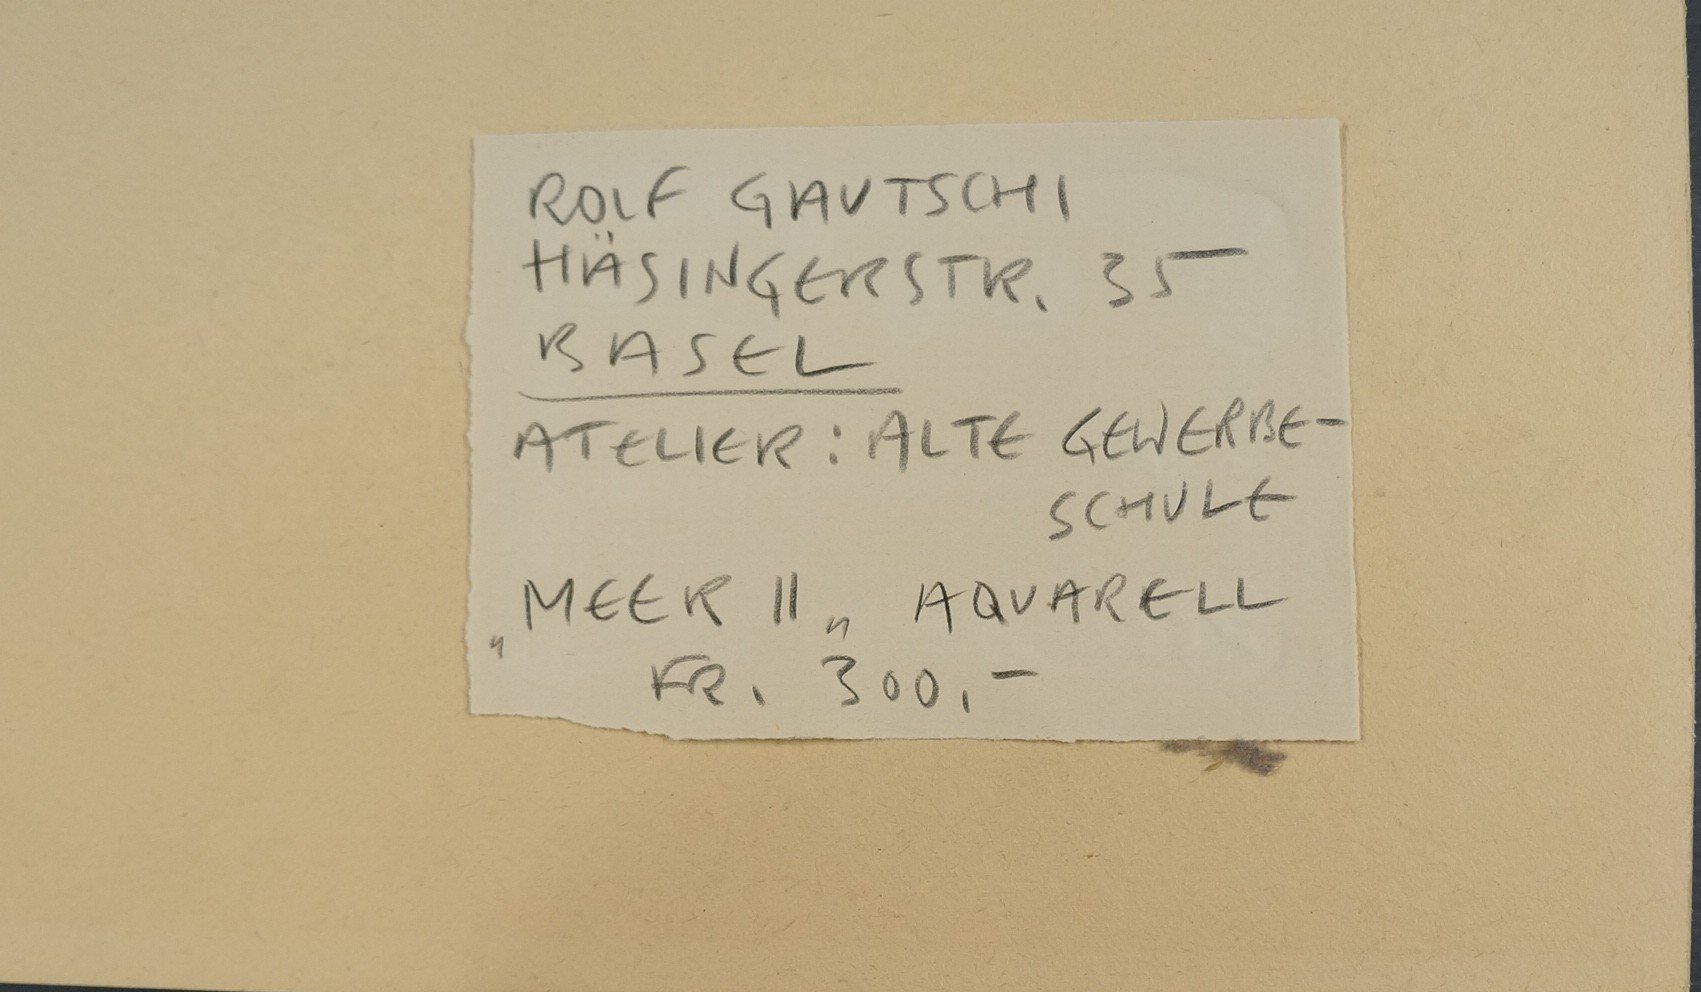 ROLF GAUTSCHI
HÄSINGERSTR. 35
BASEL
ATELIER: ALTE GEWERBE-
SCHULE
„MEER II„ AQUARELL
FR. 300.-